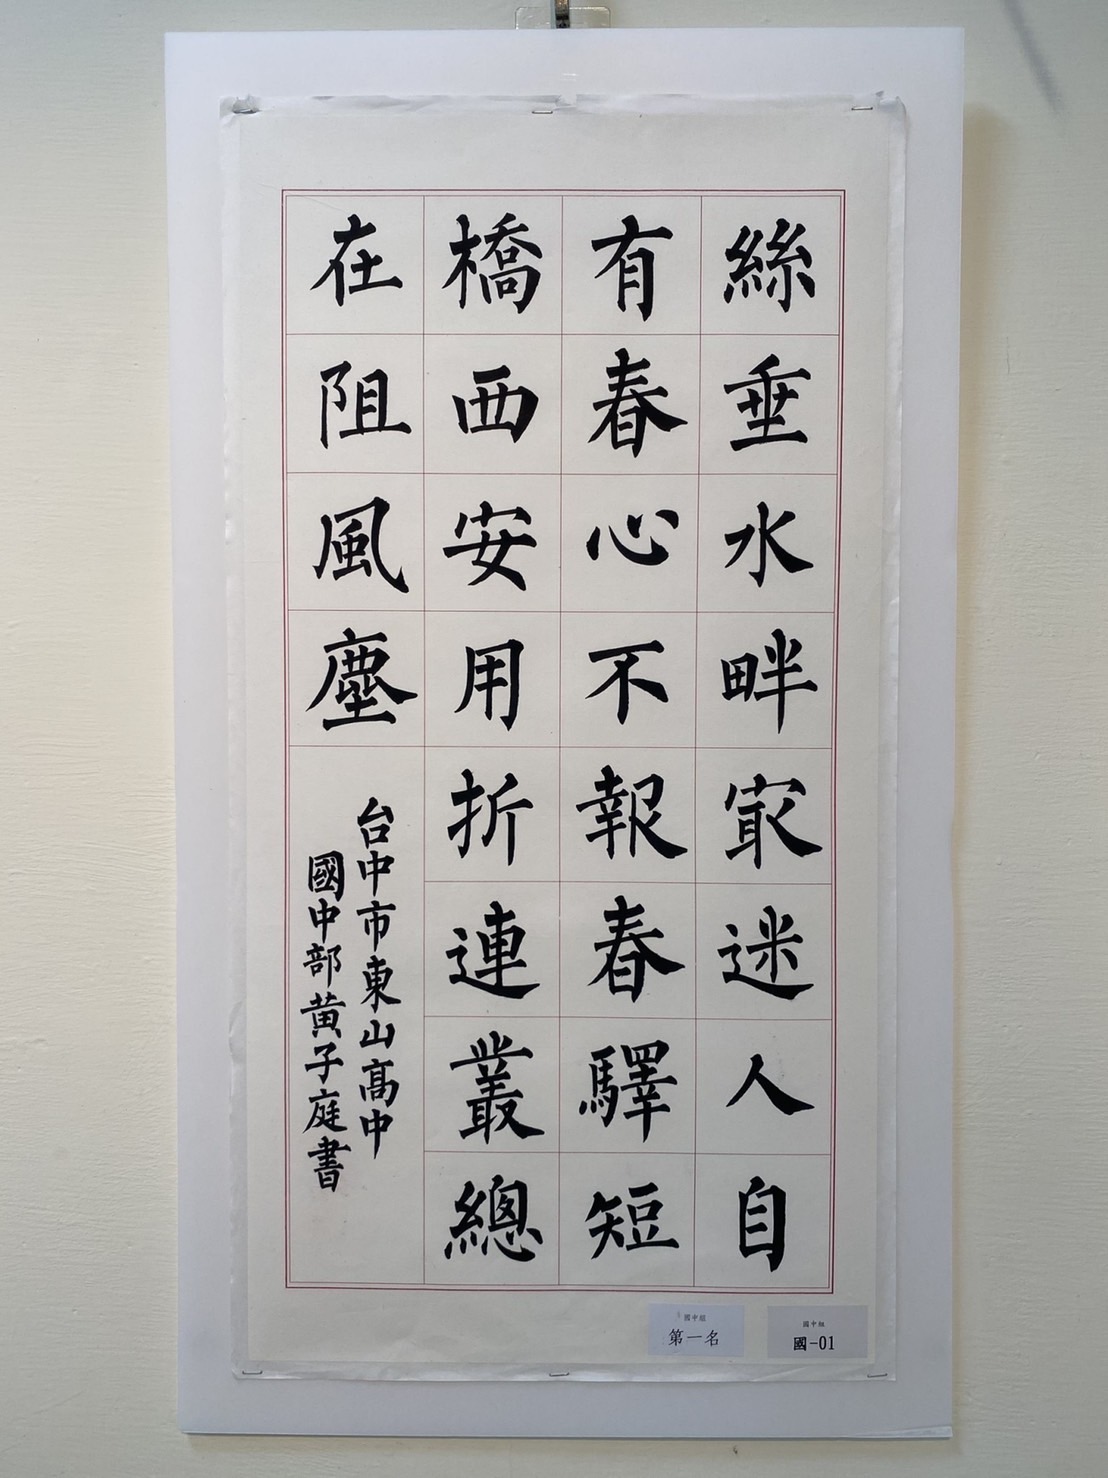 絲垂水畔㝡迷人自
有春心不報春驛短
橋西安用折連叢總
在阻風塵
台中市東山高中
國中部黃子庭書
國中組
第一名
國中組
國-01